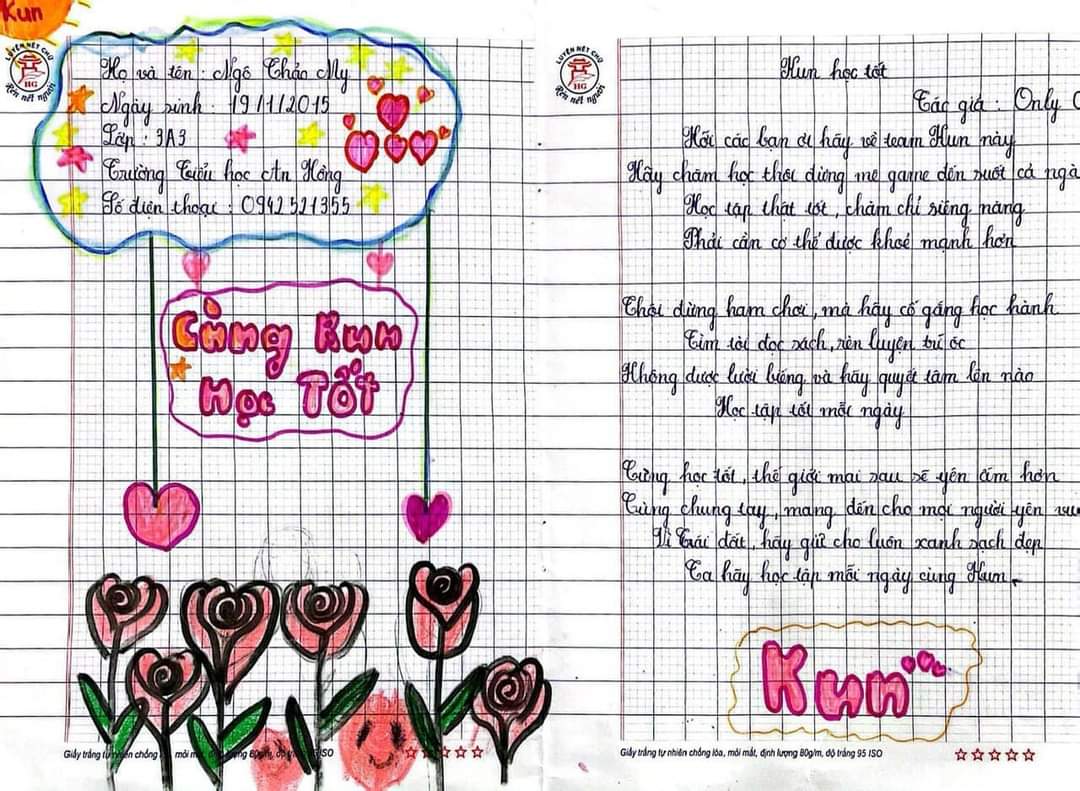 Kun
LUYỆN NÉT CHỮ
HG
Rèn nết người
Họ và tên : Ngô Thảo My
Ngày sinh : 19/1/2015
Lớp : 3A3
Trường Tiểu học An Hồng
Số điện thoại : 0942521355
Cùng Kun
Học Tốt
Giấy trắng tự nhiên chống mỏi ISO
LUYỆN NÉT CHỮ
HG
Rèn nết người
Kun học tốt
Tác giả : Only
Hỡi các bạn ơi hãy về team Kun này
Hãy chăm học thôi đừng mê game đến suốt cả ngà
Học tập thật tốt, chăm chỉ siêng năng
Phải cần có thể được khoẻ mạnh hơn
Thôi đừng ham chơi, mà hãy cố gắng học hành
Tìm tòi đọc sách, rèn luyện trí óc
Không được lười biếng và hãy quyết tâm lên nào
Học tập tốt mỗi ngày
Cùng học tốt, thế giới mai sau sẽ yên ấm hơn
Cùng chung tay, mang đến cho mọi người yên vu
Vì Trái đất, hãy giữ cho luôn xanh sạch đẹp
Ta hãy học tập mỗi ngày cùng Kun.
Kun
Giấy trắng tự nhiên chống lóa, mỏi mắt, định lượng 80g/m, độ trắng 95 ISO